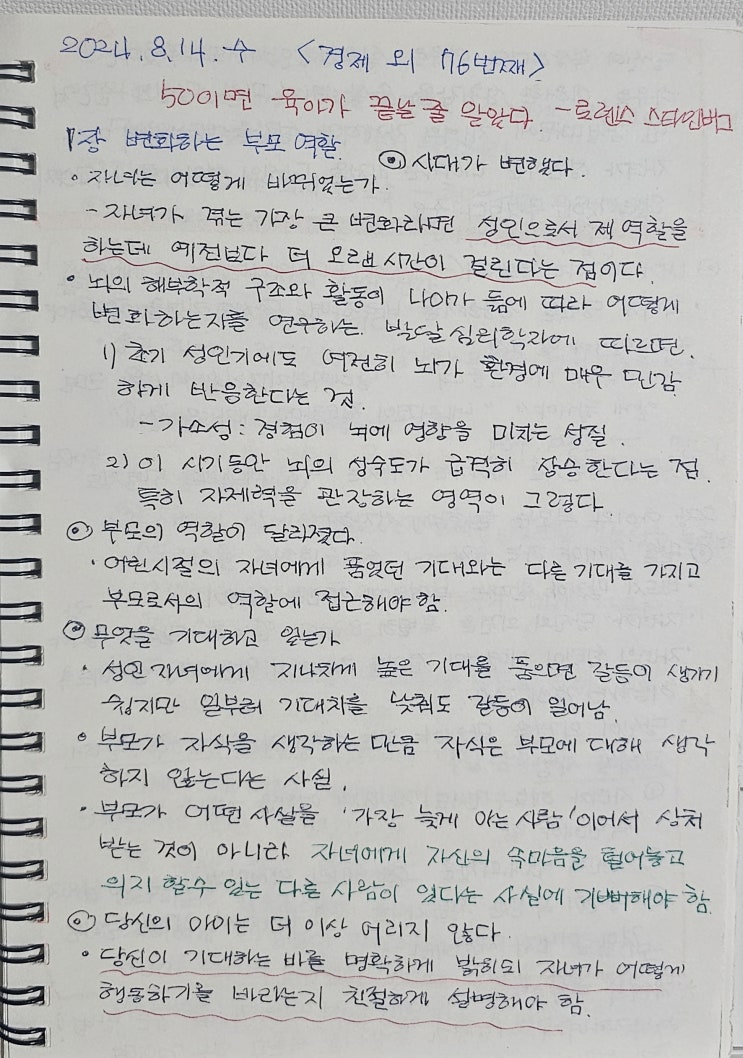 2024. 8. 14. 수 <경제 외 76번째>
50이면 육아가 끝날 줄 알았다 - 로렌스 스타인버그
1장 변화하는 부모 역할.
⊙ 시대가 변했다.
• 자녀는 어떻게 바뀌었는가.
- 자녀가 겪는 가장 큰 변화라면 성인으로서 제 역할을
하는데 예전보다 더 오랜 시간이 걸린다는 점이다.
• 뇌의 해부학적 구조와 활동이 나이가 듦에 따라 어떻게
변화하는지를 연구하는 발달 심리학자에 따르면.
1) 초기 성인기에도 여전히 뇌가 환경에 매우 민감
하게 반응한다는 것.
- 가소성 : 경험이 뇌에 영향을 미치는 성질.
2) 이 시기동안 뇌의 성숙도가 급격히 상승한다는 점.
특히 자제력을 관장하는 영역이 그렇다.
⊙ 부모의 역할이 달라졌다.
• 어린시절의 자녀에게 품었던 기대와는 다른 기대를 가지고
부모로서의 역할에 접근해야 함.
⊙ 무엇을 기대하고 있는가
• 성인 자녀에게 지나치게 높은 기대를 품으면 갈등이 생기기
쉽지만 일부러 기대치를 낮춰도 갈등이 일어남.
• 부모가 자식을 생각하는 만큼 자식은 부모에 대해 생각
하지 않는다는 사실.
• 부모가 어떤 사실을 '가장 늦게 아는 사람'이어서 상처
받는 것이 아니라 자녀에게 자신의 속마음을 털어놓고
의지 할수 있는 다른 사람이 있다는 사실에 기뻐해야 함.
⊙ 당신의 아이는 더 이상 어리지 않다.
• 당신이 기대하는 바를 명확하게 밝히되 자녀가 어떻게
행동하기를 바라는지 친절하게 설명해야 함.